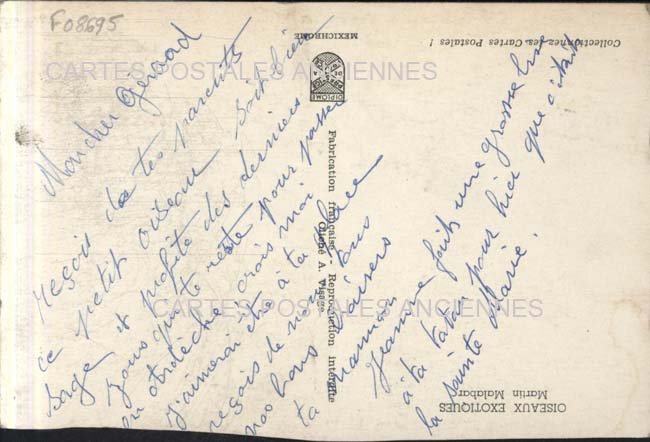 F08695
Mon cher Gerard
reçois de tes parents
ce petit oiseau soit bien
sage et profite des derniers
jours qui te reste pour passer
en obrdèche crois moi
j'aimerai être à ta place
reçois de nous tous
nos bons baisers
ta maman
Jeanne fait une grosse bise
à ta tata pour hier que c'était
la sainte Marie.
CARTES POSTALES ANCIENNES
CARTES POSTALES ANCIENNES
MEXICHROME
DIPLOME
Fabrication française - Reproduction interdite
Cliché A. Visage
Collectionnez les Cartes Postales !
OISEAUX EXOTIQUES
Martin Malabar